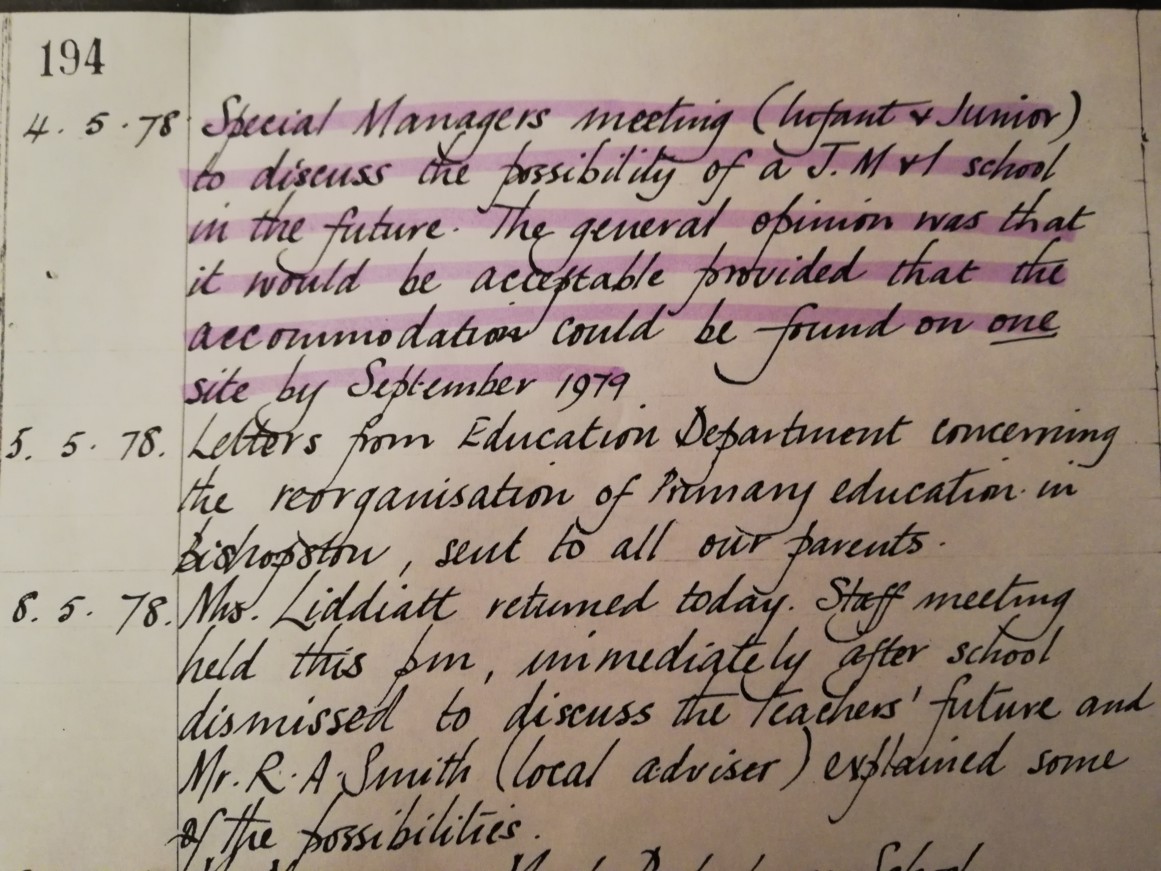 194
4. 5. 78. Special Managers meeting (Infant & Junior)
to discuss the possibility of a J.M & I school
in the future. The general opinion was that
it would be acceptable provided that the
accommodation could be found on one
site by September 1979
5. 5. 78. Letters from Education Department concerning
the reorganisation of Primary education in
Bishopston, sent to all our parents.
8. 5. 78. Mrs. Liddiatt returned today. Staff meeting
held this pm, immediately after school
dismissed to discuss the Teachers' future and
Mr. R. A. Smith (local adviser) explained some
of the possibilities.